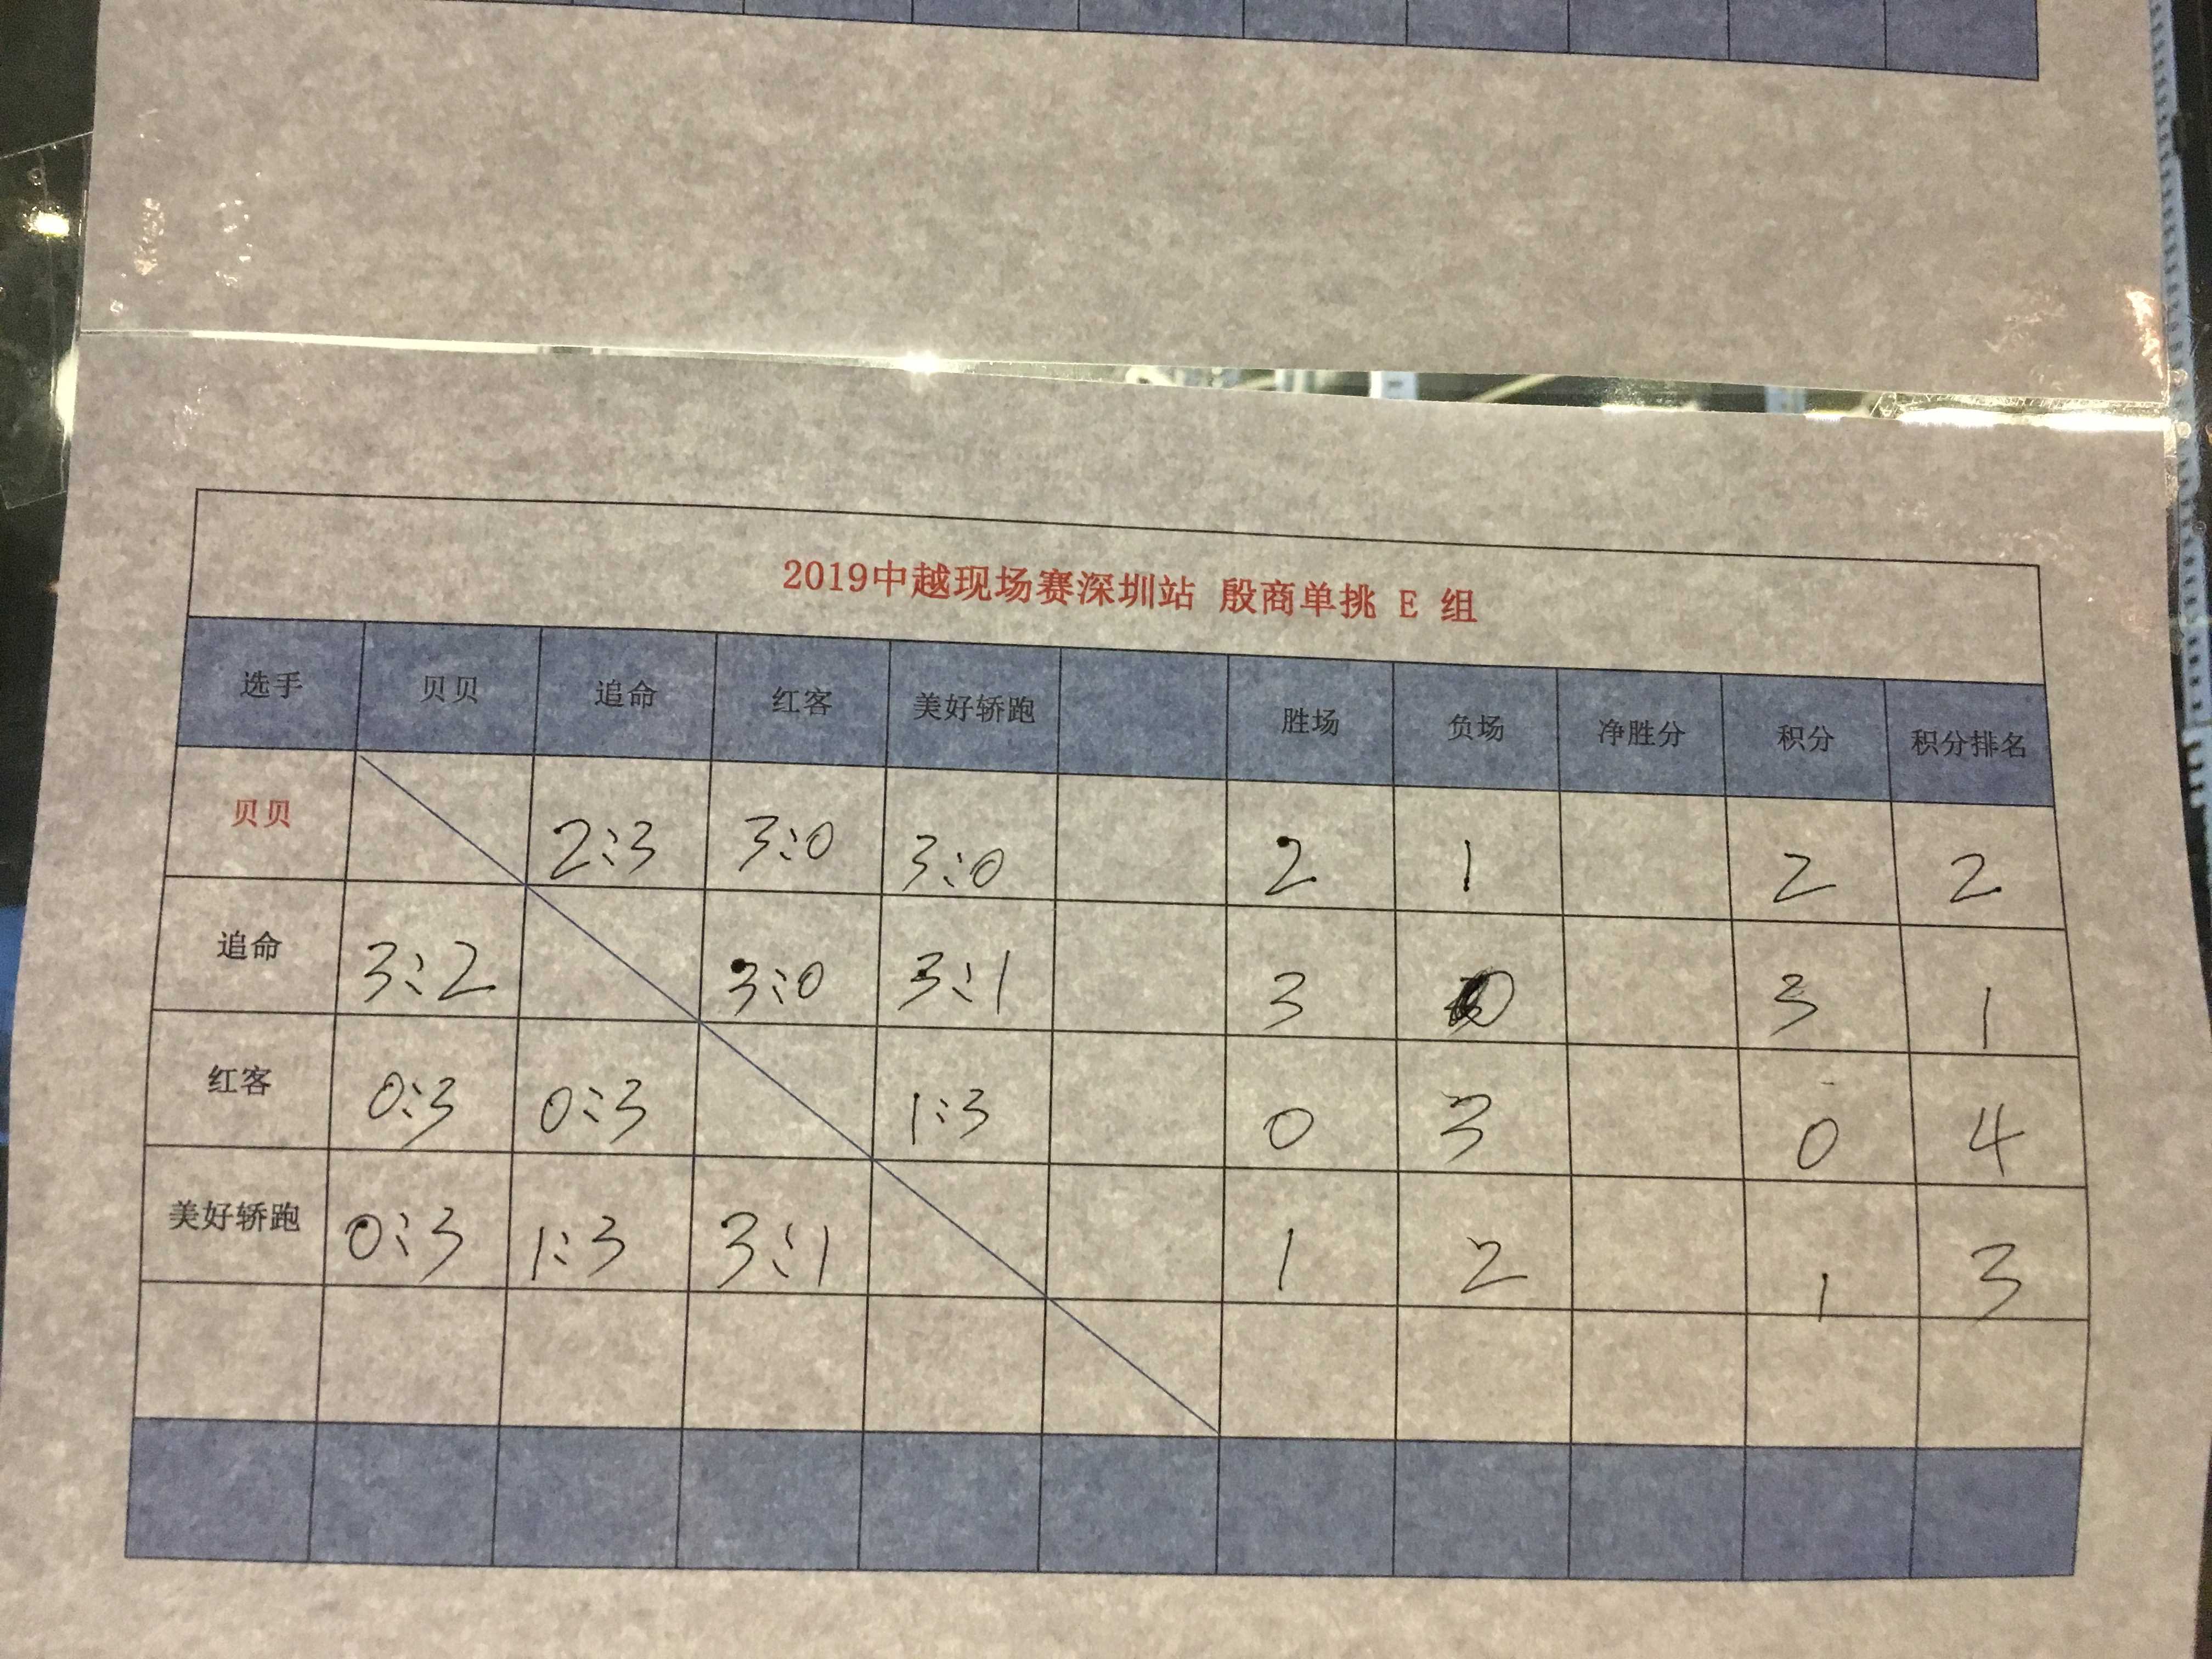 2019中越现场赛深圳站 殷商单挑 E 组
选手 贝贝 追命 红客 美好轿跑 胜场 负场 净胜分 积分 积分排名
贝贝 2:3 3:0 3:0 2 1 2 2
追命 3:2 3:0 3:1 3 0 3 1
红客 0:3 0:3 1:3 0 3 0 4
美好轿跑 0:3 1:3 3:1 1 2 1 3